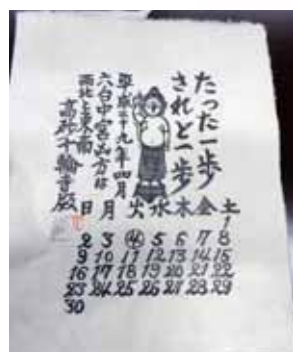 たった一歩
されど一歩
平成二十九年四月
六白中宮凶方は
西北と東南
日 月 火 水 木 金 土
1
2 3 4 5 6 7 8
9 10 11 12 13 14 15
16 17 18 19 20 21 22
23 24 25 26 27 28 29
30